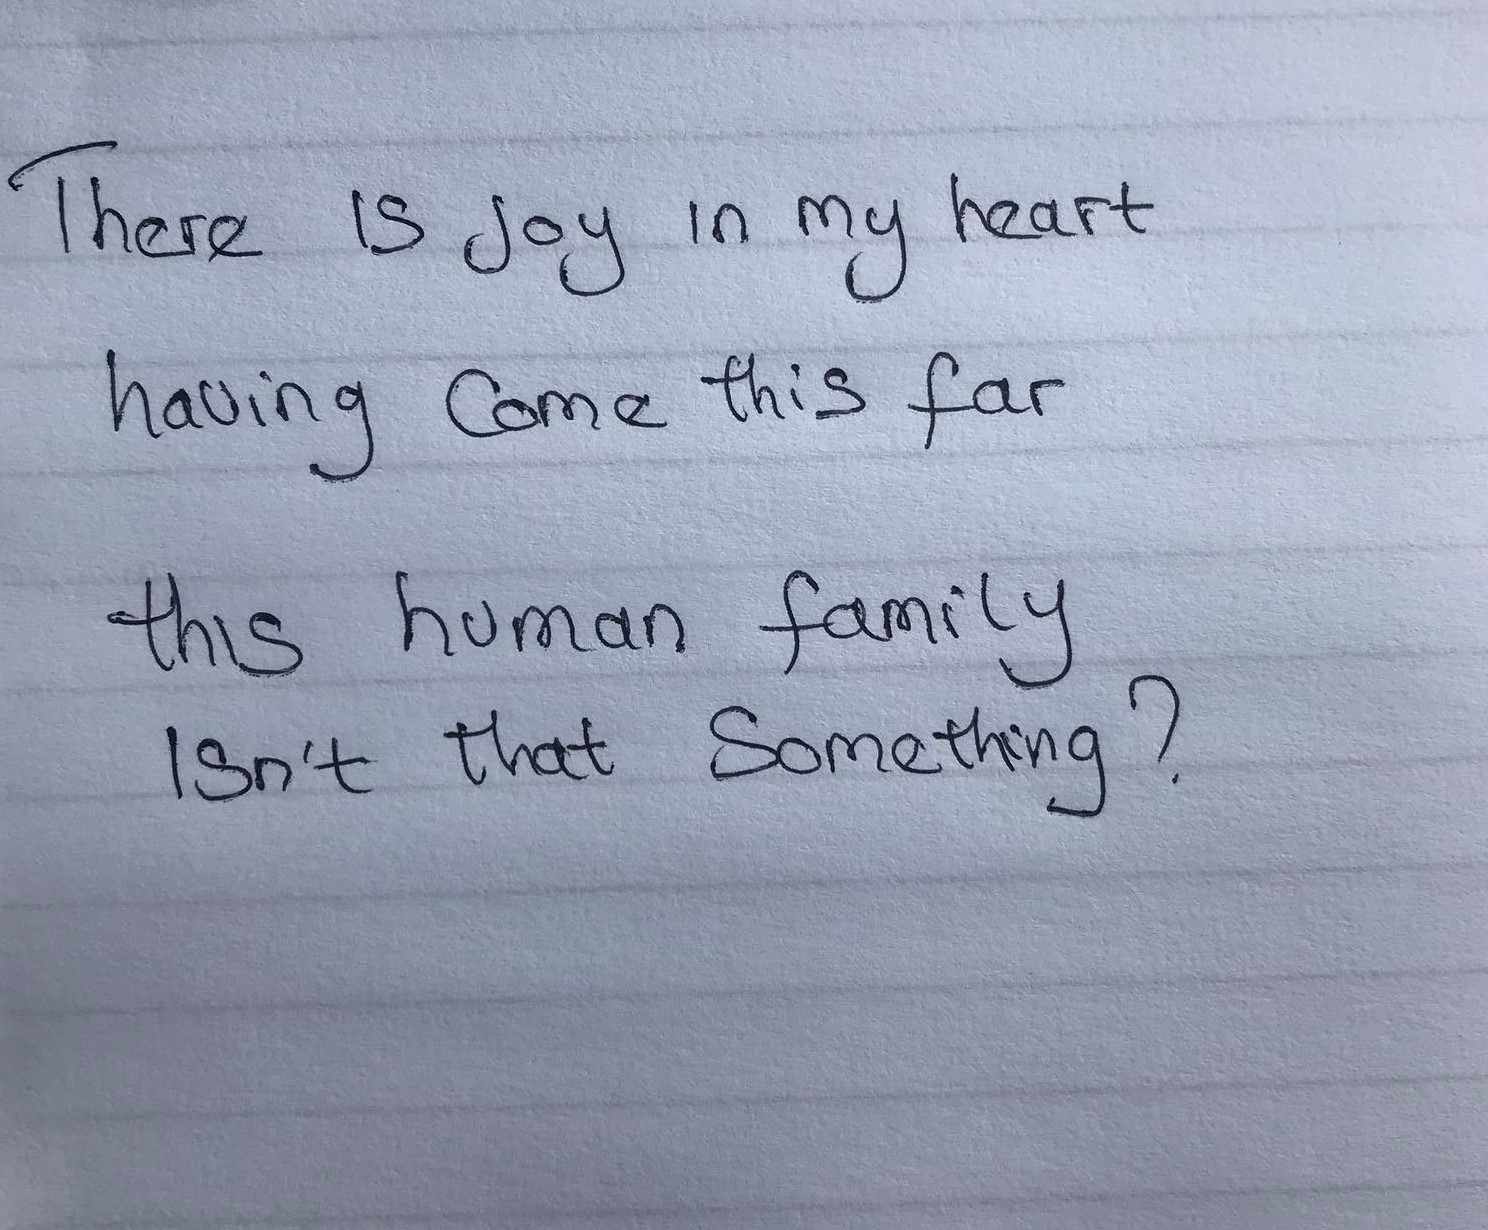 There is joy in my heart
having Come this far
this human family
Isn't that Something?